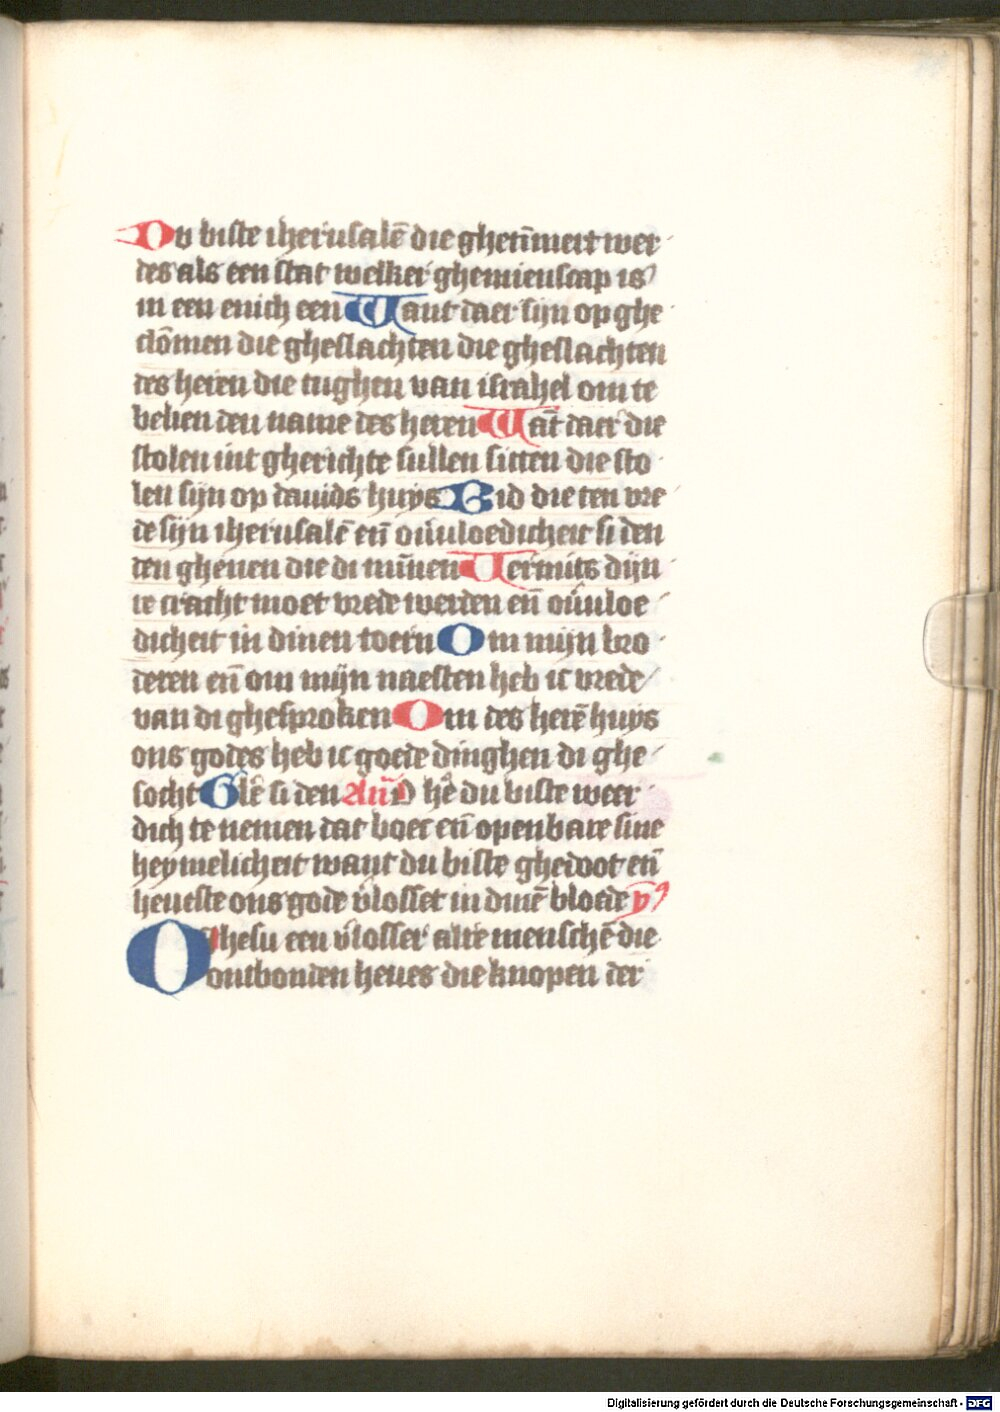 Du biste iherusalē die ghetīmert wer
des als een stat welker ghemienscap is
in een enich een Want daer sijn op ghe
clōmen die gheslachten die gheslachten
des heren die tughen van israhel om te
belien den name des heren Wāt daer die
stolen int gherichte sullen sitten die sto
len sijn op dauids huys Bid die ten vre
de sijn iherusalē eñ ou̅uloedicheit si den
den ghenen die di mīnen Termits dijn
re cracht moet vrede werden eñ ou̅uloe
dicheit in dinen toern Om mijn bro
deren eñ om mijn naesten heb ic vrede
van di ghesproken Om des herē huys
ons godes heb ic goede dinghen di ghe
socht Glē si den Añ O hē du biste weer
dich te nemen dat boec eñ openbare sine
heymelicheit want du biste ghedoot eñ
heueste ons gode v̄losset in dinē bloede
O Ihesu een v̄losser alre menschē die
ontbonden heues die knopen der
Digitalisierung gefördert durch die Deutsche Forschungsgemeinschaft - DFG